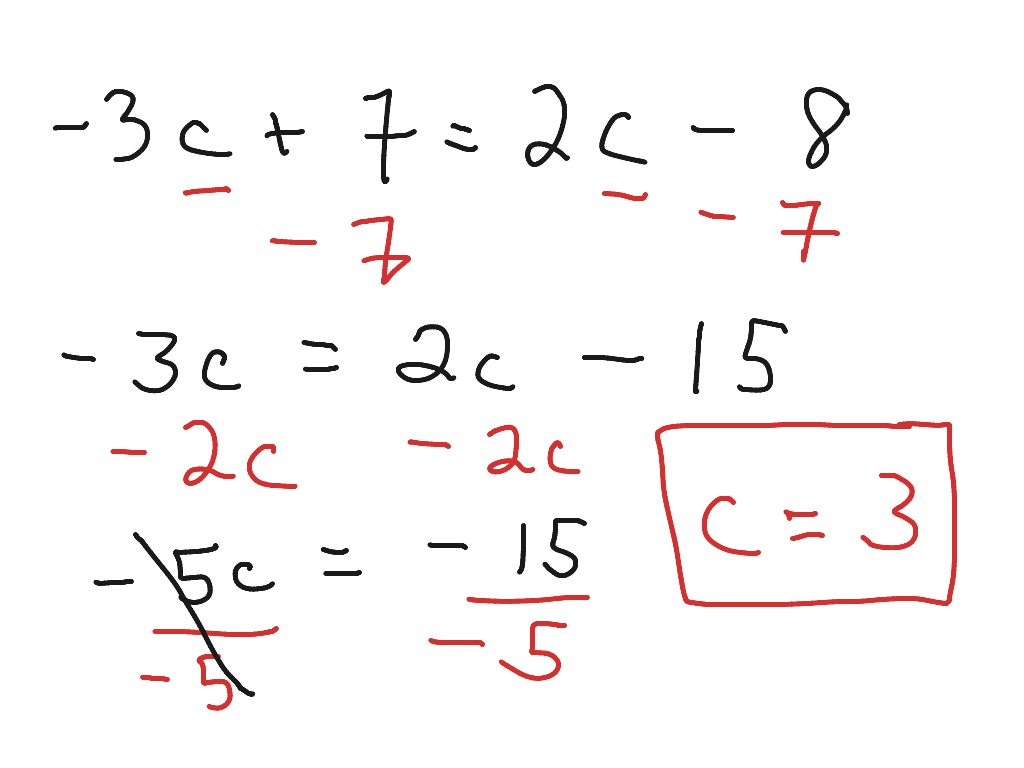 -3c + 7 = 2c - 8
- 7 - 7
-3c = 2c - 15
- 2c - 2c
-5c = -15
-5 -5
c = 3